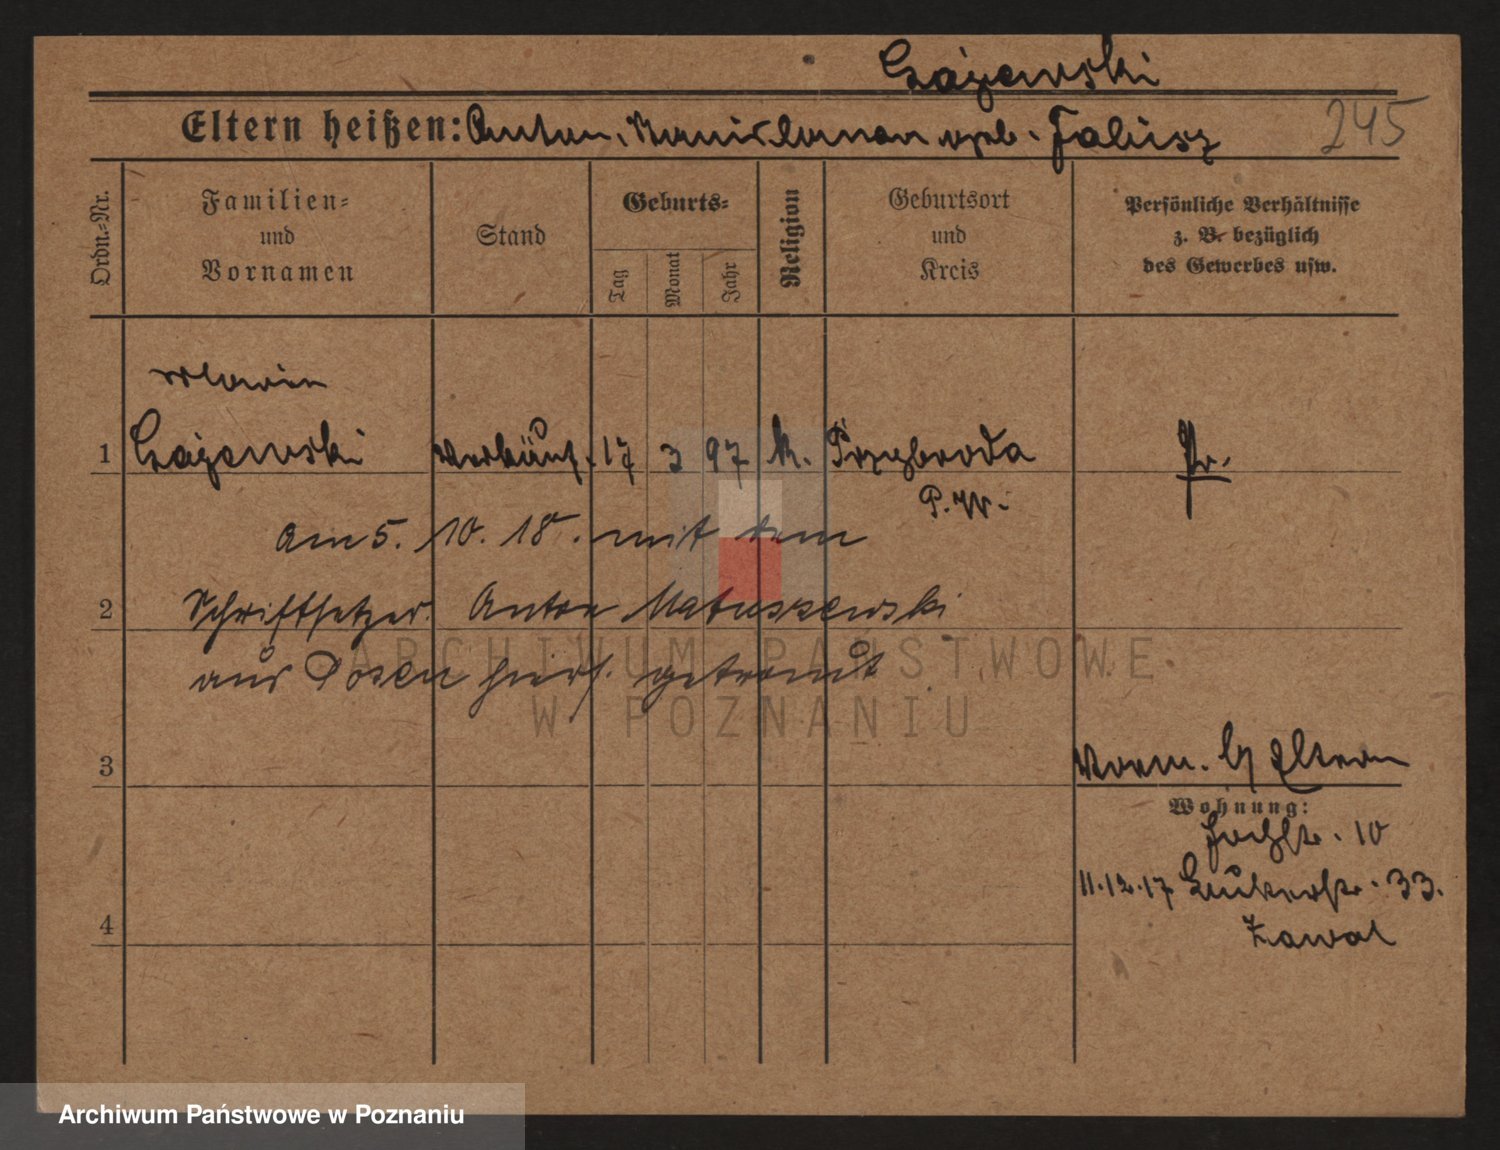 Łajewski
Eltern heißen: Anton, Stanislawa geb. Falusz
245
Ordn.-Nr.
Familien-
und
Vornamen
Stand
Geburts-
Tag
Monat
Jahr
Religion
Geburtsort
und
Kreis
Persönliche Verhältnisse
z. B. bezüglich
des Gewerbes usw.
1
Łajewski
Verkäuf. 17 3 97 k. Przybroda
P.W.
Pr.
Am 5. 10. 18. mit dem
2
Schriftsetzer Anton Matuszewski
aus Posen hiers. getraut
3
Vorm. bz Eltern
Wohnung:
10
11.12.17 33.
4
Zawal
ARCHIWUM PAŃSTWOWE
W POZNANIU
Archiwum Państwowe w Poznaniu